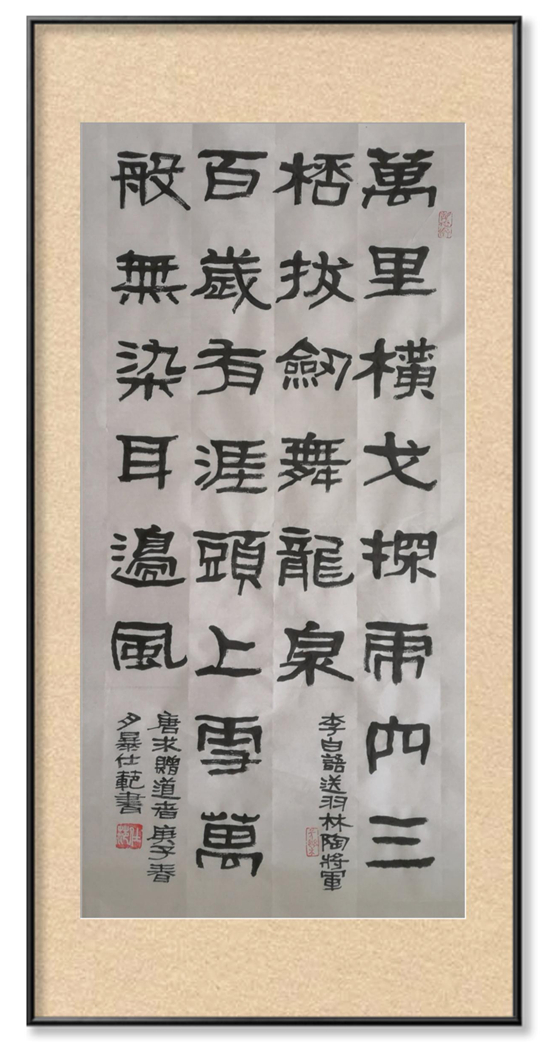 萬里橫戈探乕穴三
桮拔劒舞龍泉
李白語送羽林陶將軍
百歲有涯頭上雪萬
般無染耳邊風
唐求贈道者庚子春
夕暴仕範書